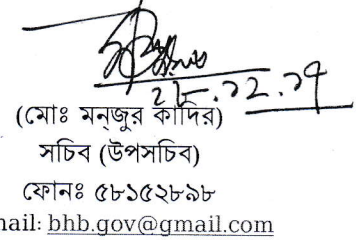 ২৮.১২.১৭
(মোঃ মন্‌জুর কাদির)
সচিব (উপসচিব)
ফোনঃ ৫৮১৫২৮৯৮
nail: bhb.gov@gmail.com